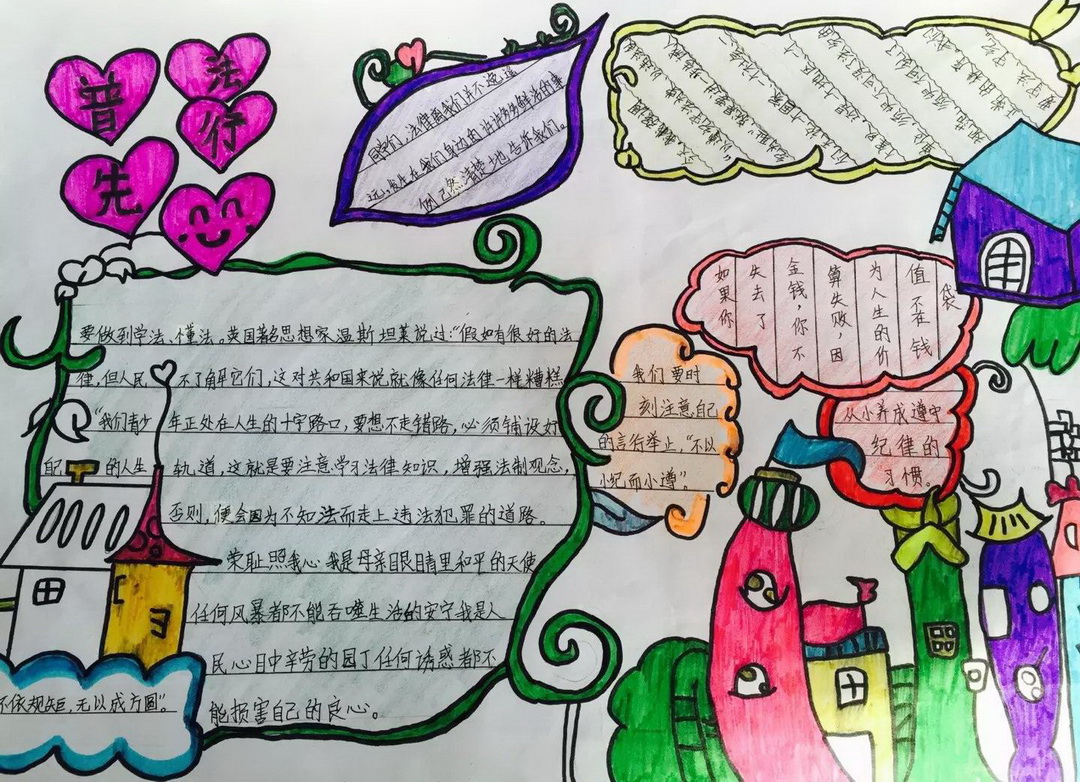 普法
先行
同学们,法律离我们并不遥
远,发生在我们身边的许许多多鲜活的事
例已然清楚地告诉我们。
要做到学法、懂法。英国著名思想家温斯坦莱说过:“假如有很好的法
律,但人民不了解它们,这对共和国来说就像任何法律一样糟糕
“我们青少年正处在人生的十字路口,要想不走错路,必须铺设好
自己的人生轨道,这就是要注意学习法律知识,增强法制观念,
否则,便会因为不知法而走上违法犯罪的道路。
荣耻照我心 我是母亲眼睛里和平的天使
任何风暴都不能吞噬生活的安宁我是人
民心目中辛劳的园丁任何诱惑都不
能损害自己的良心。
不依规矩,无以成方圆”。
如果你
失去了
金钱,你不
算失败,因
为人生的价
值不在钱
袋
我们要时
刻注意自己
的言行举止,“不以
小纪而小遵”。
从小养成遵守
纪律的
习惯。